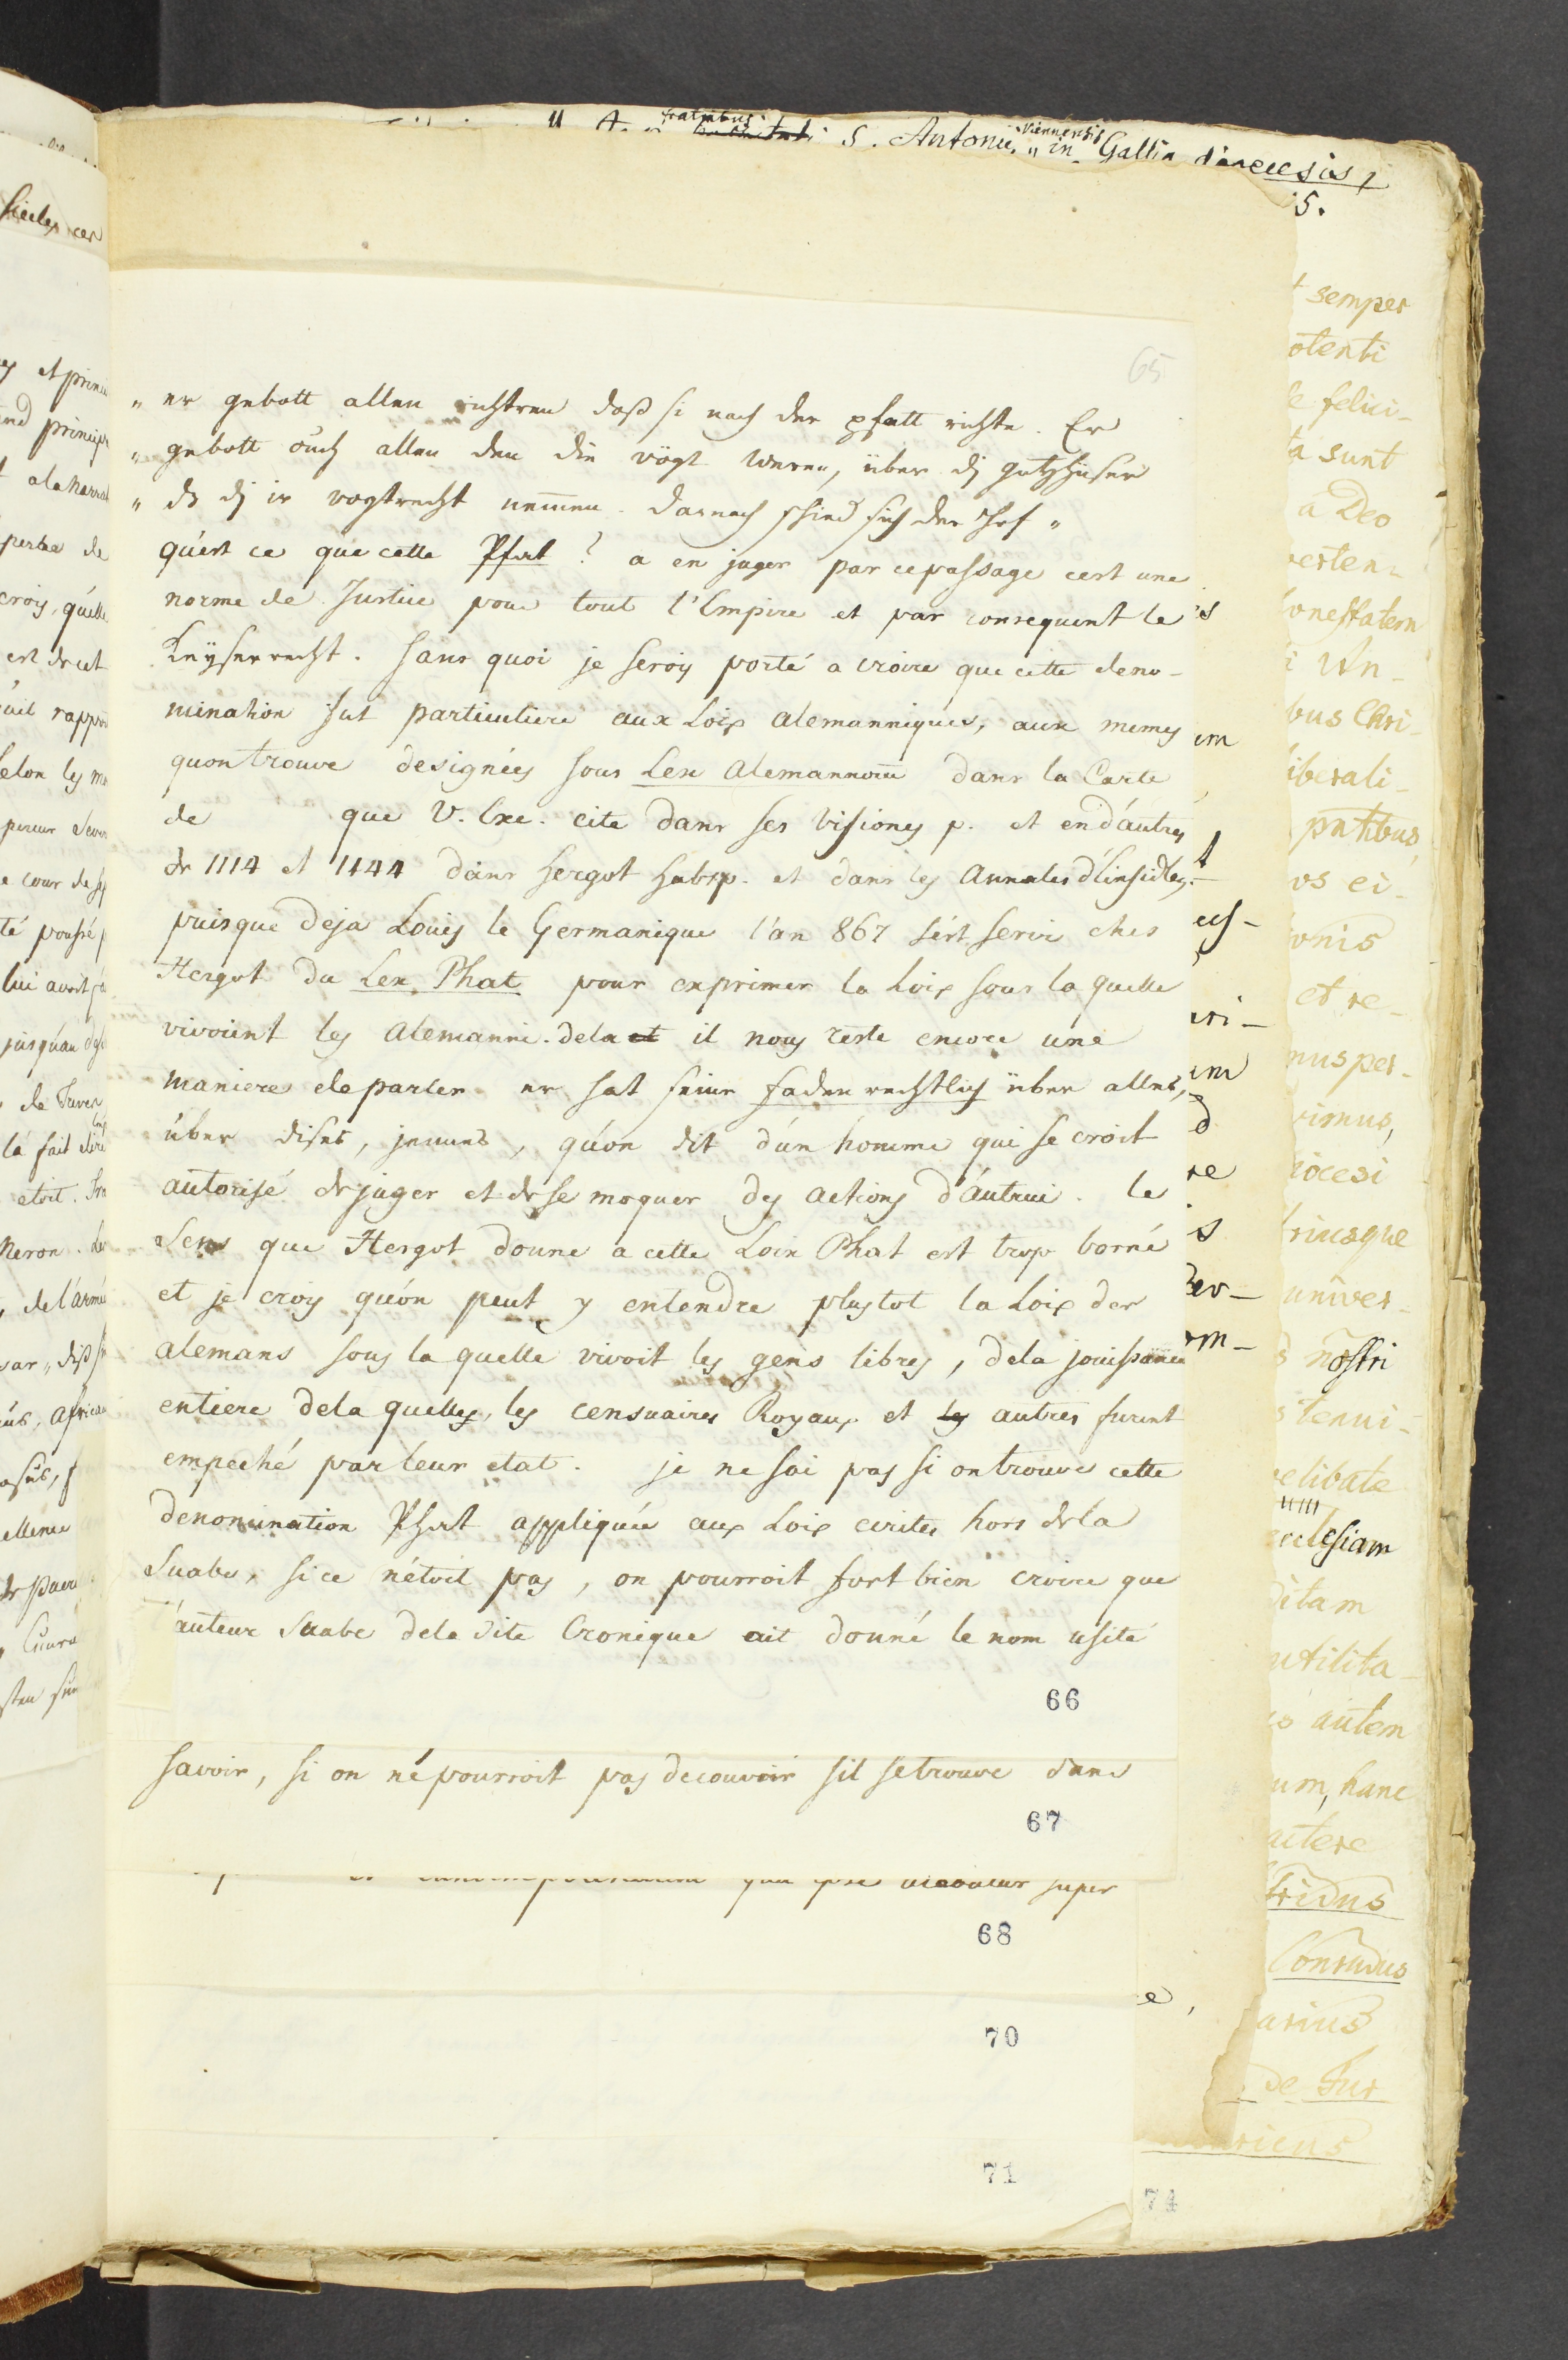 fratribus
S. Antonii, Viennensis in Gallia diœcesis,
5.
65
„ er gebott allen richtren daß si nach der pfatt richte. Er
„ gebott öuch allen den die vögt weren, über dj gotzhüser
„ ds dj ir vogtrecht nemmen. darnach schied sich der Hof „
qu'est ce que cette Pfat? a en juger par ce passage cest une
norme de Justice pour tout l'Empire et par consequent le
Keyserrecht. sans quoi je serois porté a croire que cette deno-
mination fut particuliere aux Loix alemanniques, aux memes
quon trouve designées sous Lex Alemannorum dans la Carte
de que V. Exc. cite dans ses visiones p. et en d'autres
de 1114 et 1144 dans Hergot Habsp. et dans les Annales d'Einsidlen,
puisque deja Louis le Germanique l'an 867 s'est servi ches
Hergot du Lex Phat pour exprimer la Loix sous la quelle
vivoient les Alemanni. dela et il nous reste encore une
maniere de parler er hat seine fadenrechtlich über alles,
über dises, jennes, qu'on dit d'un homme qui se croit
autorisé de juger et de se moquer des actions d'autrui. le
Sens que Hergot donne a cette Loix Phat est trop borné
et je crois qu'on peut y entendre plustot la Loix des
alemans sous la quelle vivoit les gens libres, dela jouissance
entiere dela quelles, les censuaires Royaux et les autres furent
empeché par leur etat. je ne sai pas si on trouve cette
denomination Phat appliquée aux Loix ecrites hors de la
Suabe, si ce n'étoit pas, on pourroit fort bien croire que
l'auteur Suabe dela dite Cronique ait donné le nom usité
66
savoir, si on ne pourroit pas decouvrir sil se trouve dans
67
super
68
70
71
74
semper
otenti
felici-
ta sunt
a Deo
onestatem
bus Chri-
iberali-
vos ei-
onis
et re-
nus per-
rimus,
iocesi
univer-
nostri
ecclesiam
ditam
utilita-
autem
um, hanc
Conradus
arius
de Tur